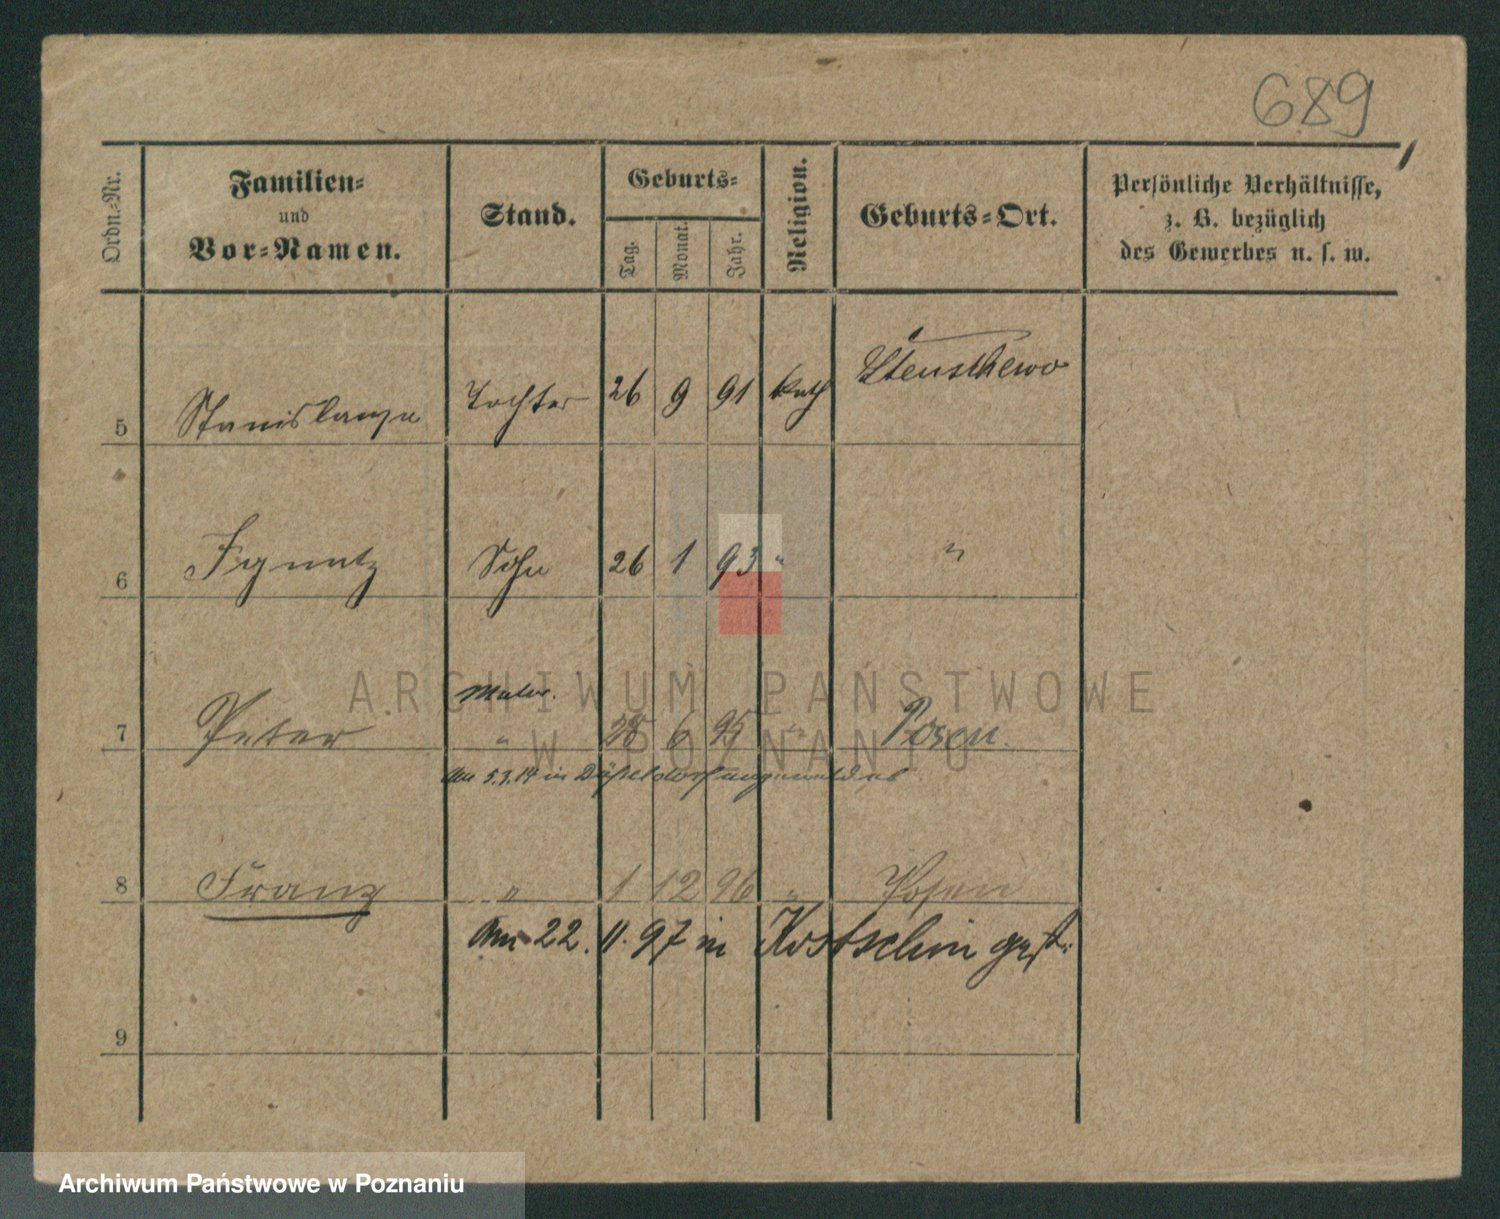 689
Ordn.-Nr.
Familien-
und
Vor-Namen.
Stand.
Geburts-
Tag.
Monat.
Jahr.
Religion.
Geburts-Ort.
Persönliche Verhältnisse,
z. B. bezüglich
des Gewerbes u. s. w.
5 Stanislawa Tochter 26 9 91 kath
6 Ignatz Sohn 26 1 93 " "
Maler.
7 Peter " 28 6 95 " Posen.
Am 5.3.14 in Düsseldorf angemeldet
8 Franz " 1 12 96 " Posen
Am 22. 11. 97 in Kostschin gest.
9
ARCHIWUM PAŃSTWOWE
W POZNANIU
Archiwum Państwowe w Poznaniu